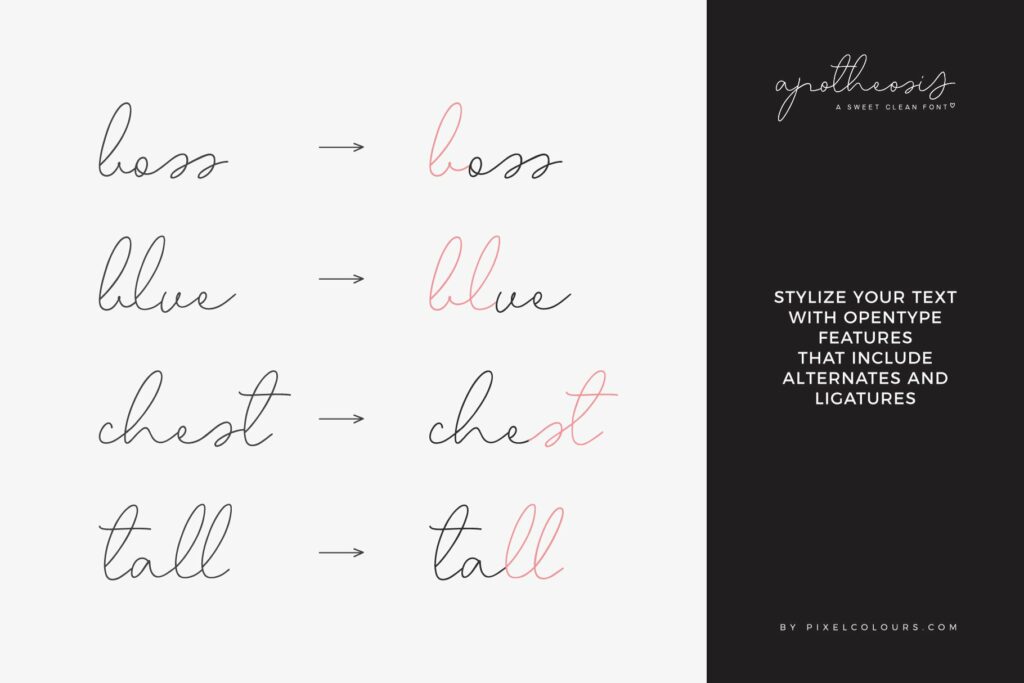 boss → boss
blue → blue
chest → chest
tall → tall
apotheosis
A SWEET CLEAN FONT♡
STYLIZE YOUR TEXT
WITH OPENTYPE
FEATURES
THAT INCLUDE
ALTERNATES AND
LIGATURES
BY PIXELCOLOURS.COM